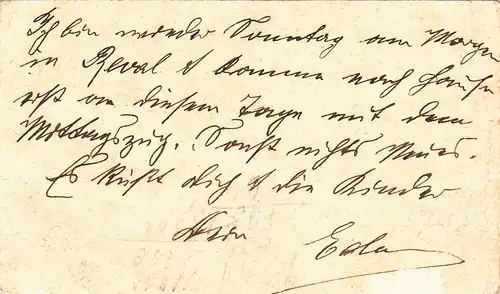 Ich bin wieder Sonntag am Morgen
in Reval & komme nach Hause
erst an diesem Tage mit dem
Mittagszug. Sonst nichts Neues.
Es küßt dich & die Kinder
Dein